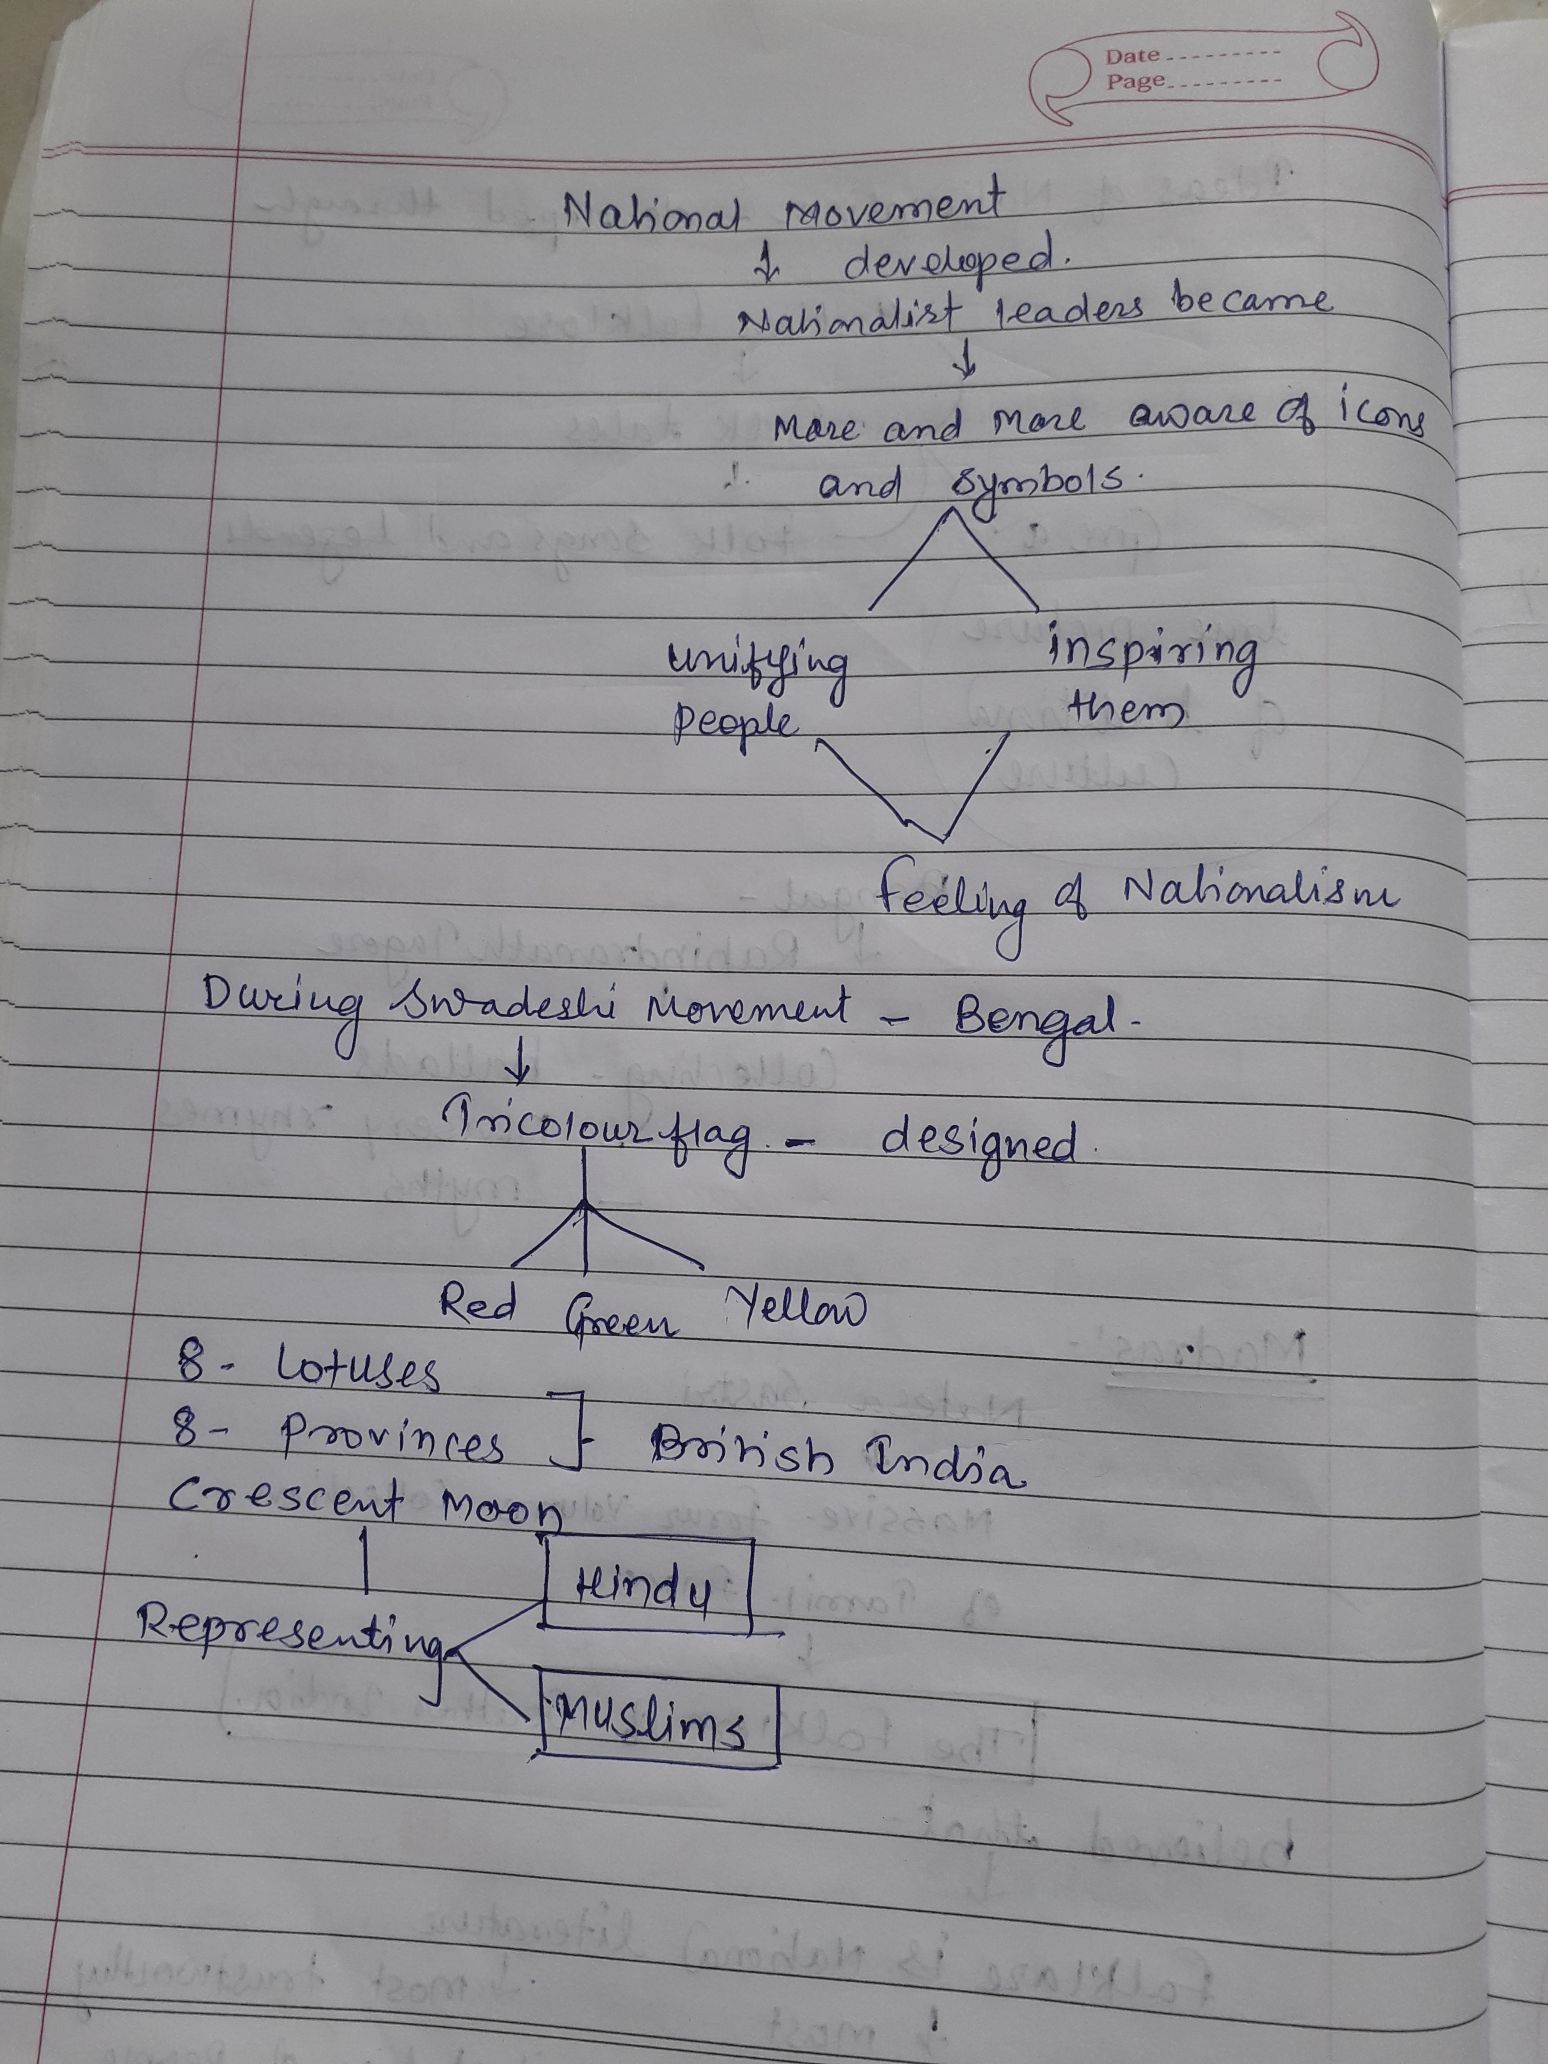 Date
Page
National Movement
↓ developed.
Nationalist leaders became
↓
More and more aware of icons
and symbols.
unifying inspiring
people them
feeling of Nationalism
During Swadeshi Movement - Bengal-
↓
Tricolour flag - designed.
Red Green Yellow
8- Lotuses
8- Provinces ] British India
Crescent Moon
Hindu
Representing
Muslims